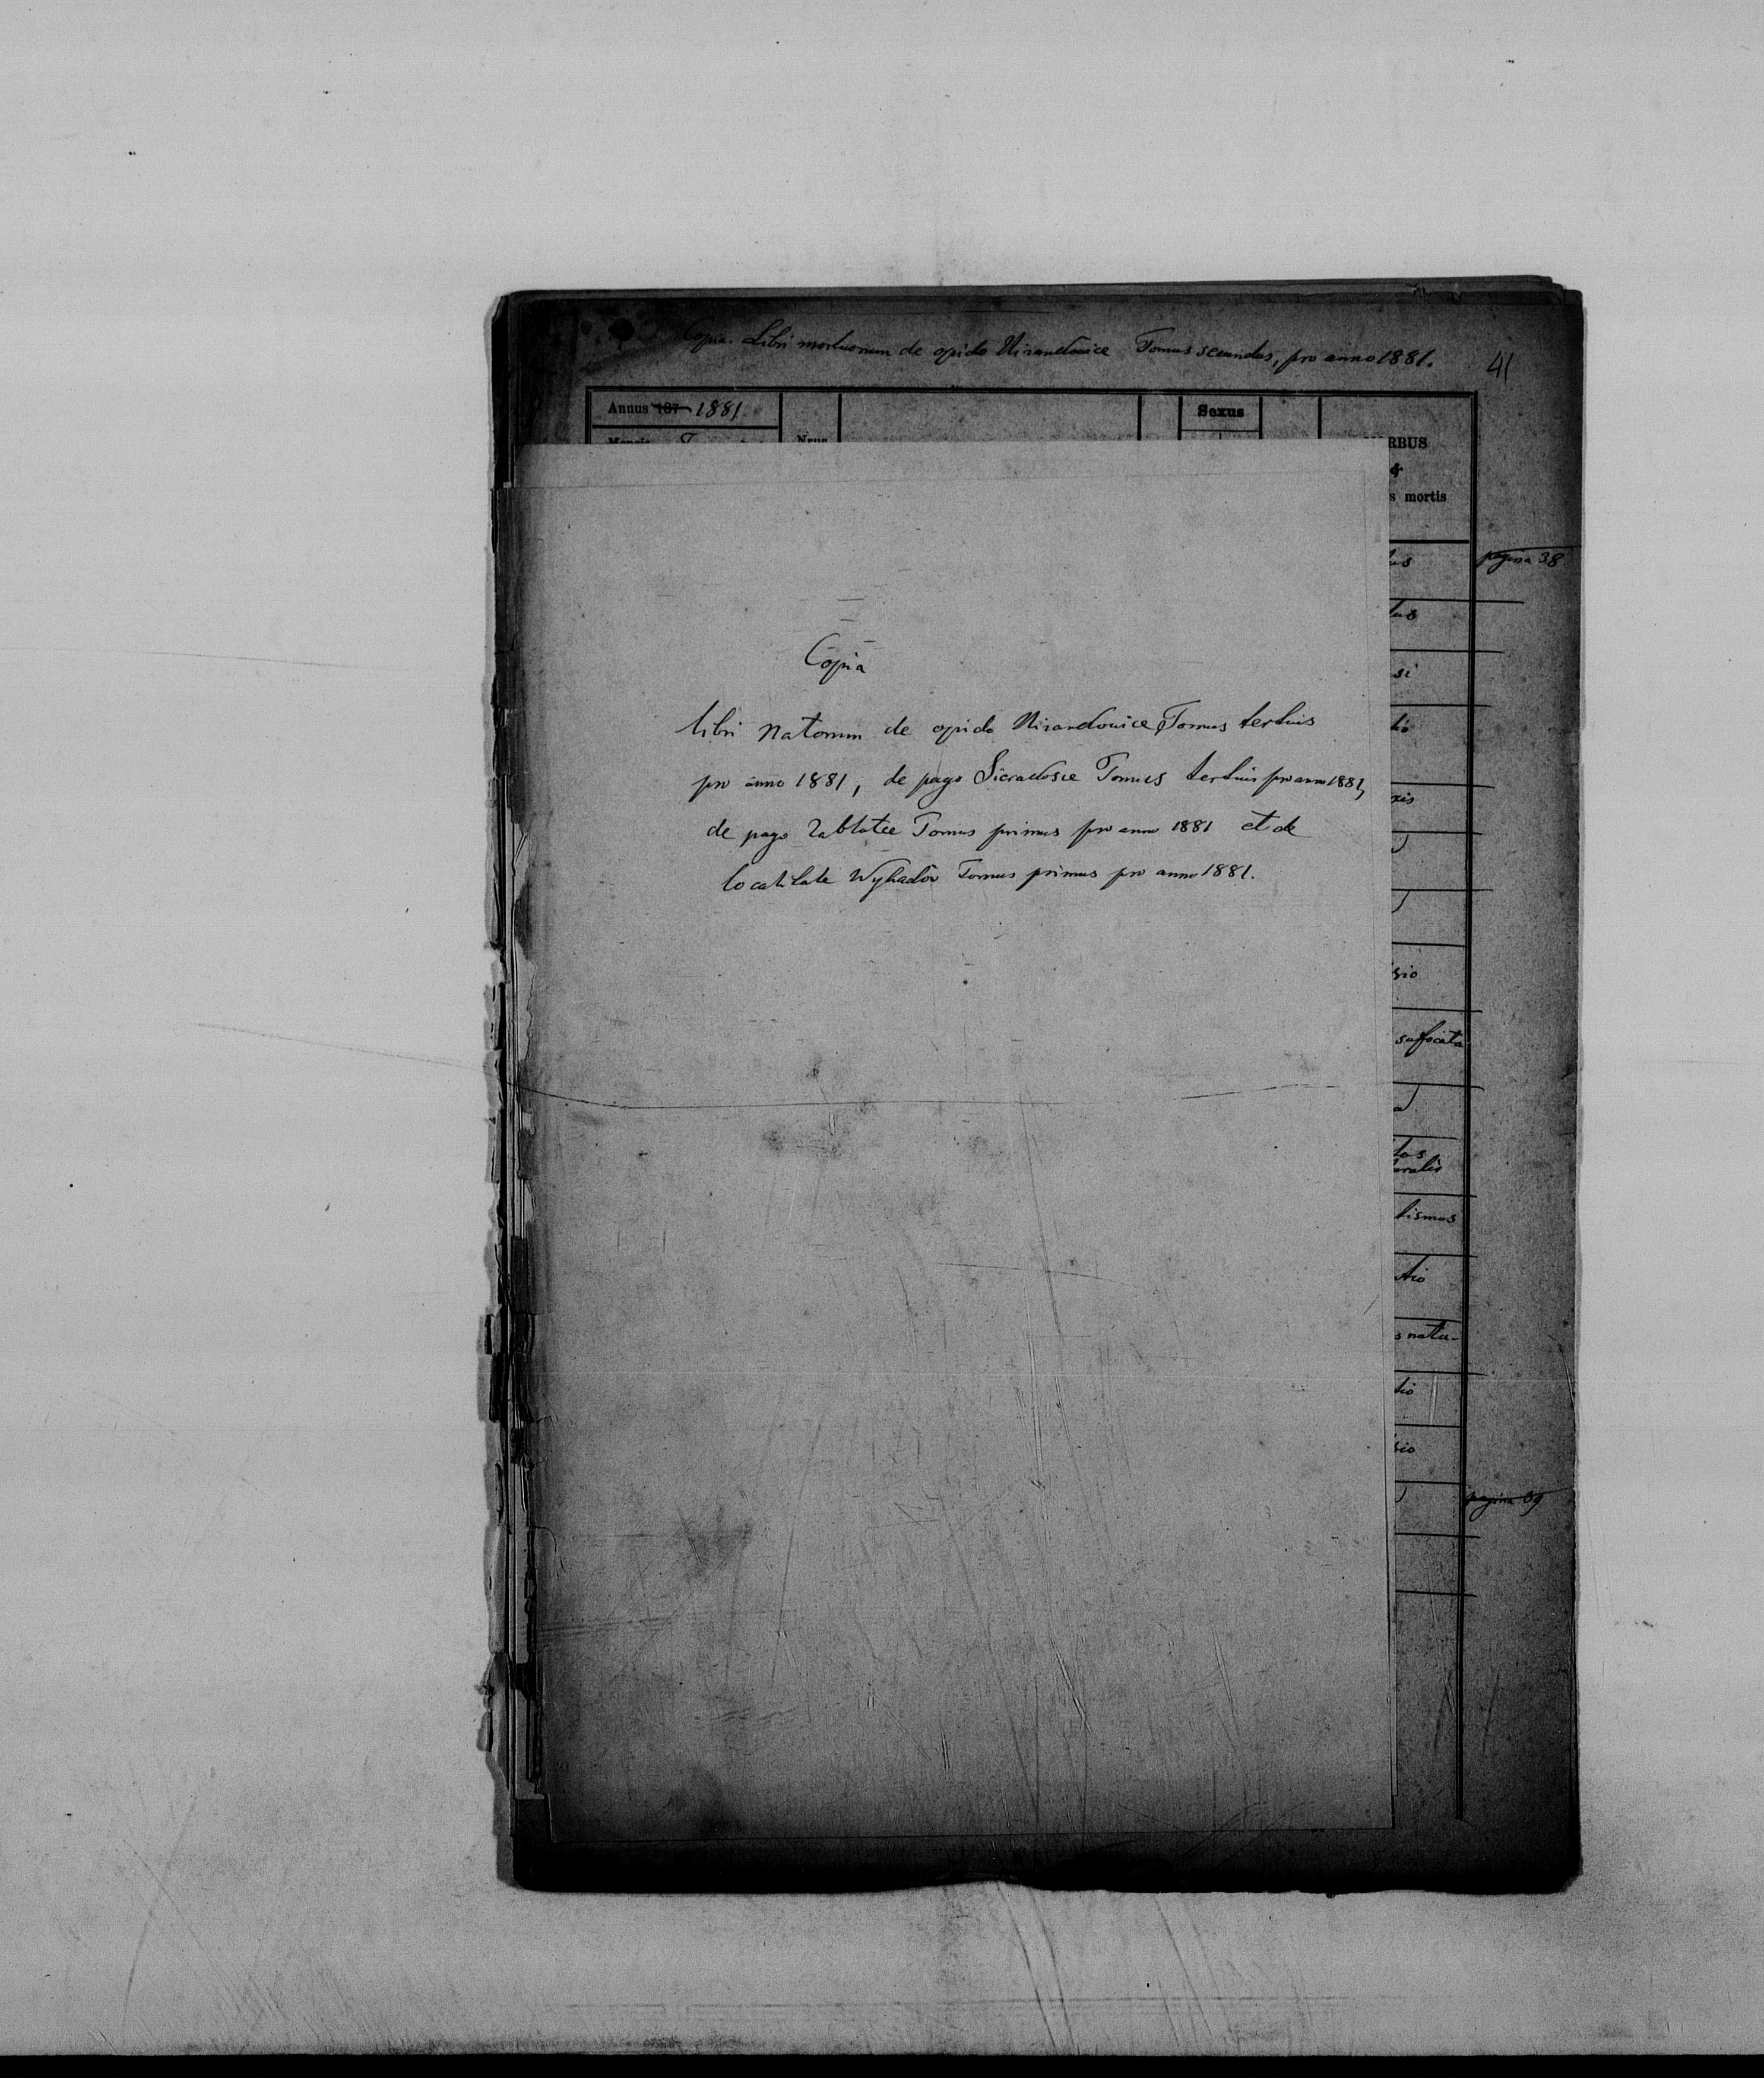 Copia. Libri mortuorum de opido Uizandowice Tomus secundus, pro anno 1881.
41
Annus 187 1881
Sexus
Nrus
RBUS
&
s mortis
pagina 38
Copia
libri natorum de opido Uizandowice Tomus tertius
pro anno 1881, de pago Sieradosce Tomus tertius pro anno 1881,
de pago Zablotce Tomus primus pro anno 1881 et de
localitate Wyhadów Tomus primus pro anno 1881.
sio
suffocata
ralis
tismus
s natu-
tio
sio
pagina 39